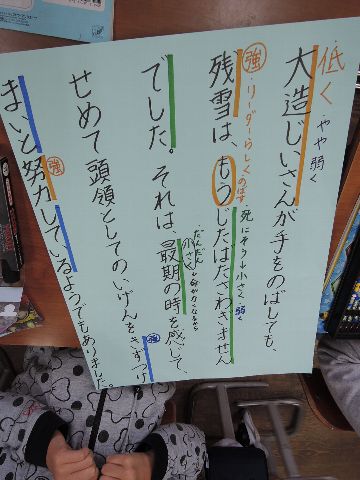 低く
やや弱く
大造じいさんが手をのばしても、
強 リーダーらしくのばす
死にそう小さく 弱く
残雪は、もうじたばたさわぎません
でした。それは、最期の時を感じて、
だんだん
小さく
命がなくなるから
強
せめて頭領としてのいげんをきずつけ
強
まいと努力しているようでもありました。